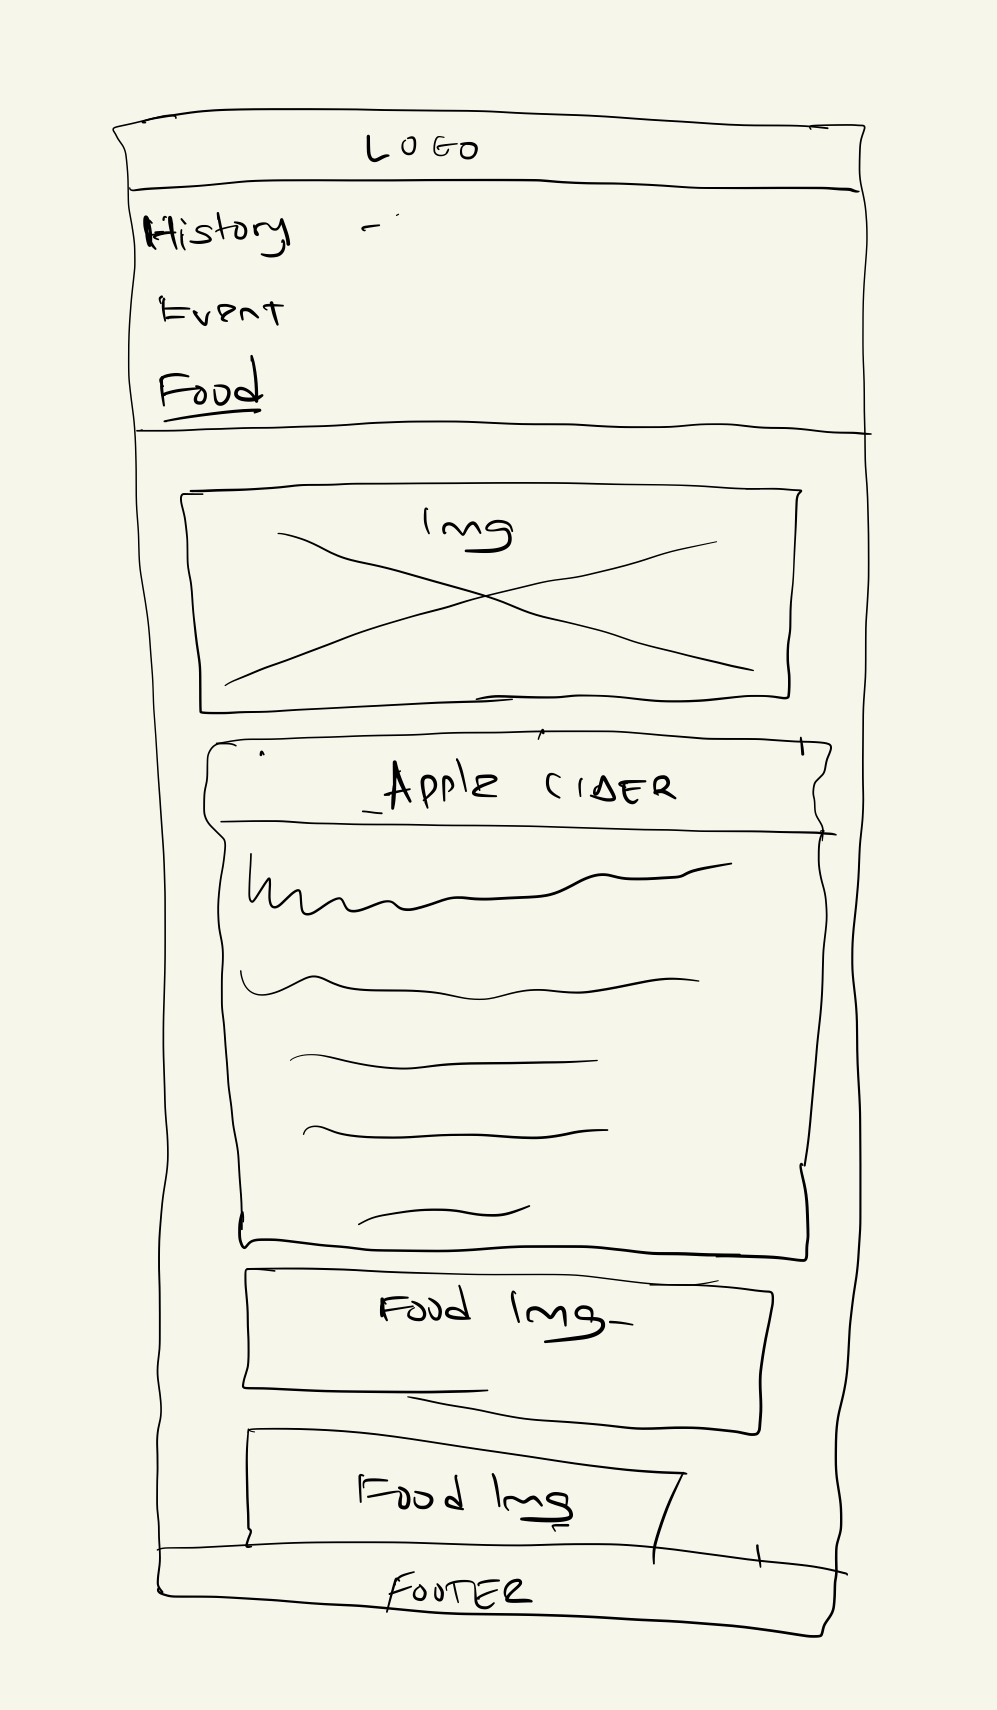 LOGO
History
Event
Food
Img
Apple CIDER
Food Img
Food Img
FOOTER